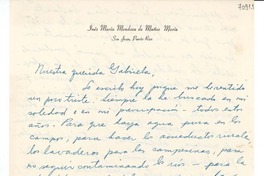 70913
Inés María Mendoza de Muñoz Marín
San Juan, Puerto Rico
Nuestra querida Gabriela,
Le escribo hoy porque me he sentido
un poco triste. Siempre la he buscado en mi
soledad o en mi preocupación - todos estos
años. Para que haya agua pura en los
campos, para hacer los acueductos rurales
los lavaderos para las campesinas, para
no seguir contaminando los ríos - para la